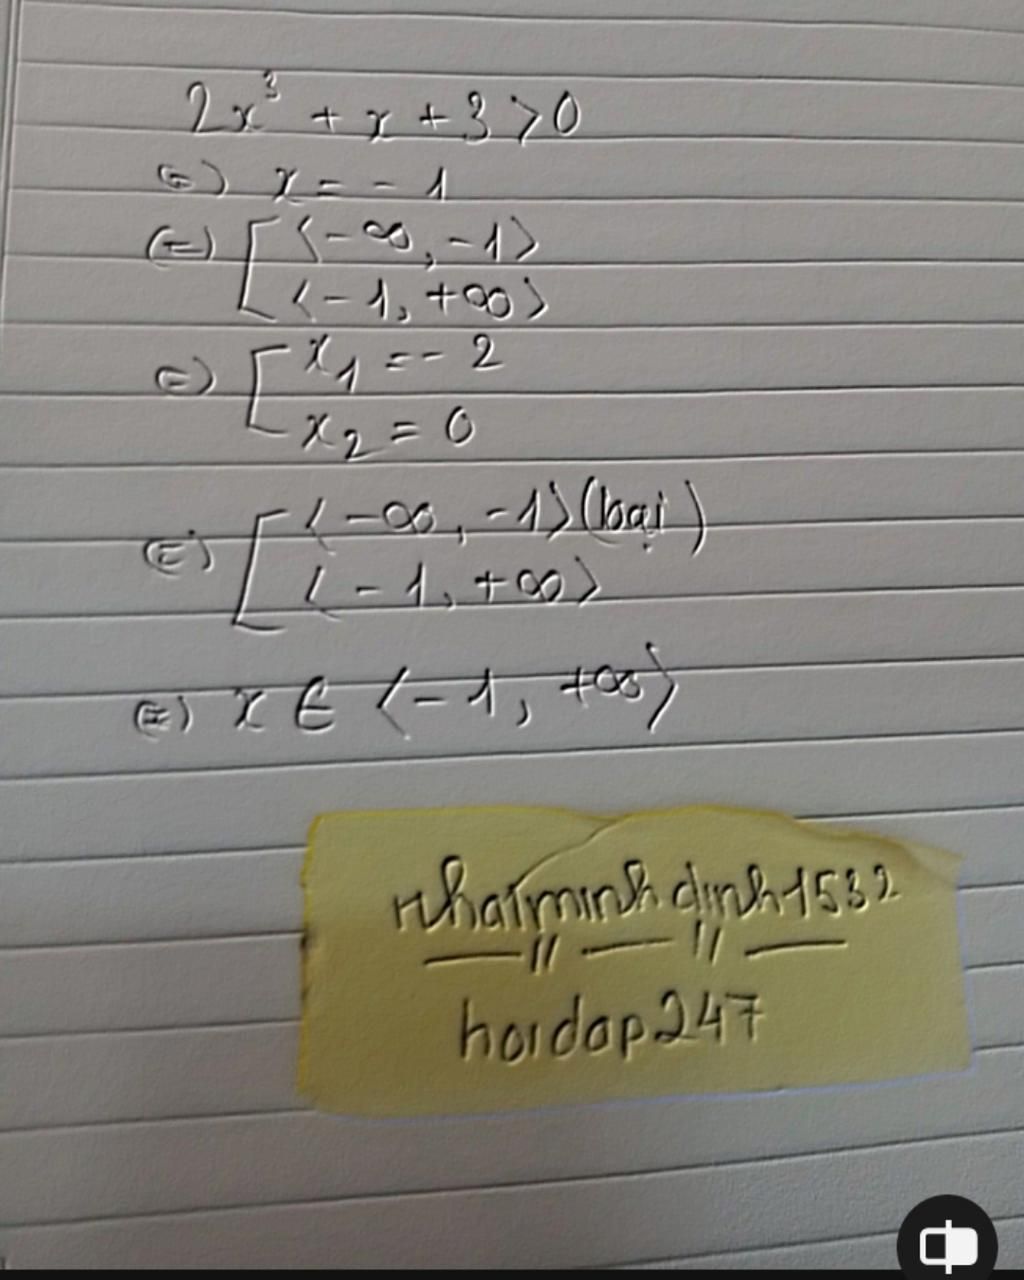 2x³ + x + 3 > 0
(=) x = - 1
(=) [ <-∞, -1>
<-1, +∞>
(=) [ x₁ = - 2
x₂ = 0
(=) [ <-∞, -1> (loại)
<-1, +∞>
(=) x ∈ <-1, +∞>
nhatminhdinh1532
— // — // —
hoidap247